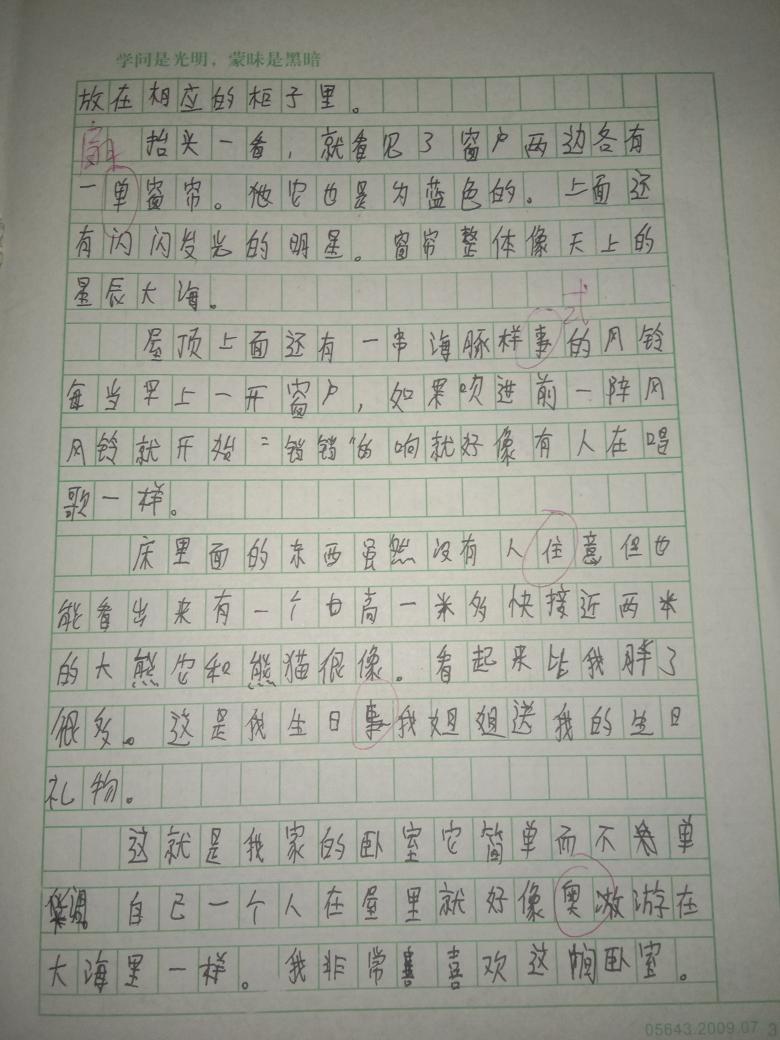 学问是光明，蒙昧是黑暗
放在相应的柜子里。
抬头一看，就看见了窗户两边各有
一单窗帘。他它也是为蓝色的。上面还
有闪闪发光的明星。窗帘整体像天上的
星辰大海。
式
屋顶上面还有一串海豚样事的风铃
每当早上一开窗户，如果吹进前一阵风
风铃就开始“铛铛”的响就好像有人在唱
歌一样。
床里面的东西虽然没有人住意但也
能看出来有一个由高一米多快接近两米
的大熊它和熊猫很像。看起来比我胖了
很多。这是我生日事我姐姐送我的生日
礼物。
这就是我家的卧室它简单而不单
自己一个人在屋里就好像奥激游在
大海里一样。我非常喜喜欢这间卧室。
05643.2009.07 3